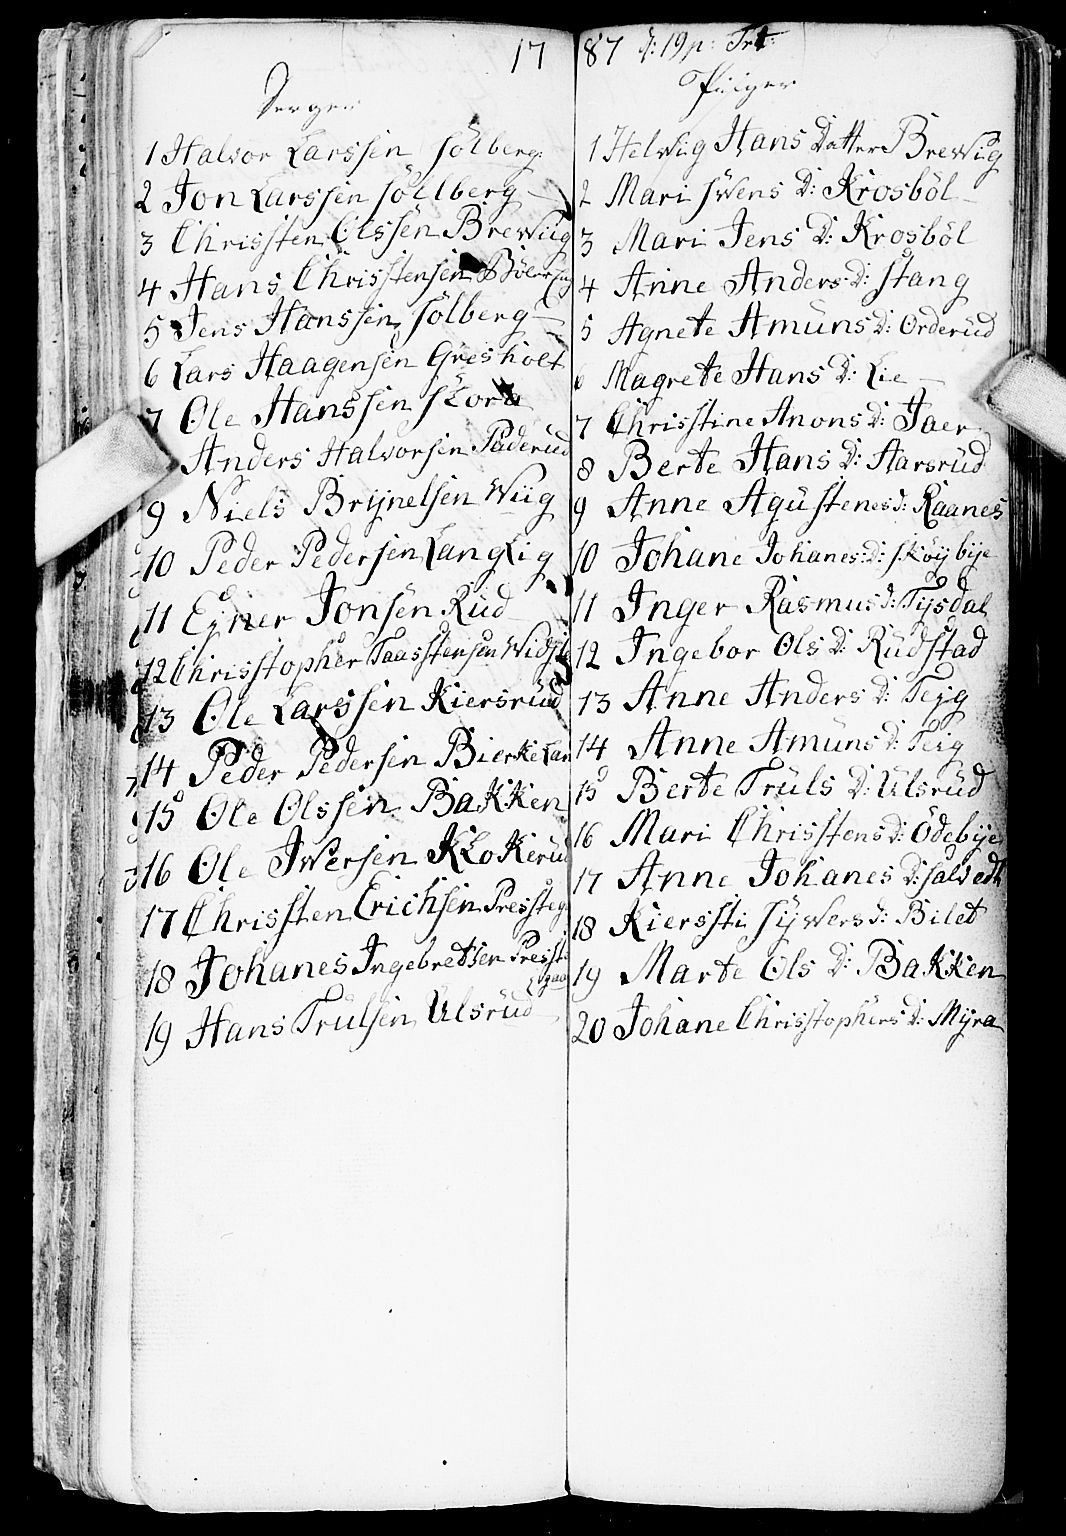 1787 d: 19 p: Trt:
Drenger
1 Halvor Larssen Sølberg
2 Jon Larssen Søllberg
3 Christen Olssen Brewiig
4 Hans Christensen
5 Jens Hanssen Sølberg
6 Lars Haagensen Gresholt
7 Ole Hanssen
Anders Halvorsen Paderud
9 Niels Brynelsen Wiig
10 Peder Pedersen Langlig
11 Ejner Jonsen Rud
12 Christopher Taasstensen
13 Ole Larssen Kiersrud
14 Peder Pedersen Bierkelan
15 Ole Olssen Bakken
16 Ole Iwersen Klokerud
17 Christen Erichsen Presteg
18 Johanes Ingebretsen Prestegaar
19 Hans Trulsen Ulsrud
Piiger
1 Helwiig Hans Datter Brewiig
2 Mari Swens D: Krosbøl
3 Mari Jens D: Krosbøl
4 Anne Anders D: Stang
5 Agnete Amuns D: Orderud
6 Magrete Hans D: Lie
7 Christine Anons D: Jaer
8 Berte Hans D: Aarsrud
9 Anne Agustenes D: Raanes
10 Johane Johanes D: Skøybye
11 Inger Rasmus D: Tysdal
12 Ingebor Ols D: Rudstad
13 Anne Anders D: Tejg
14 Anne Amuns D: Teig
15 Berte Truls D: Ulsrud
16 Mari Christens D: Ødebye
17 Anne Johanes D: Salvedt
18 Kiersti Sywers D: Bilet
19 Marte Ols D: Bakken
20 Johane Christophers D: Myra